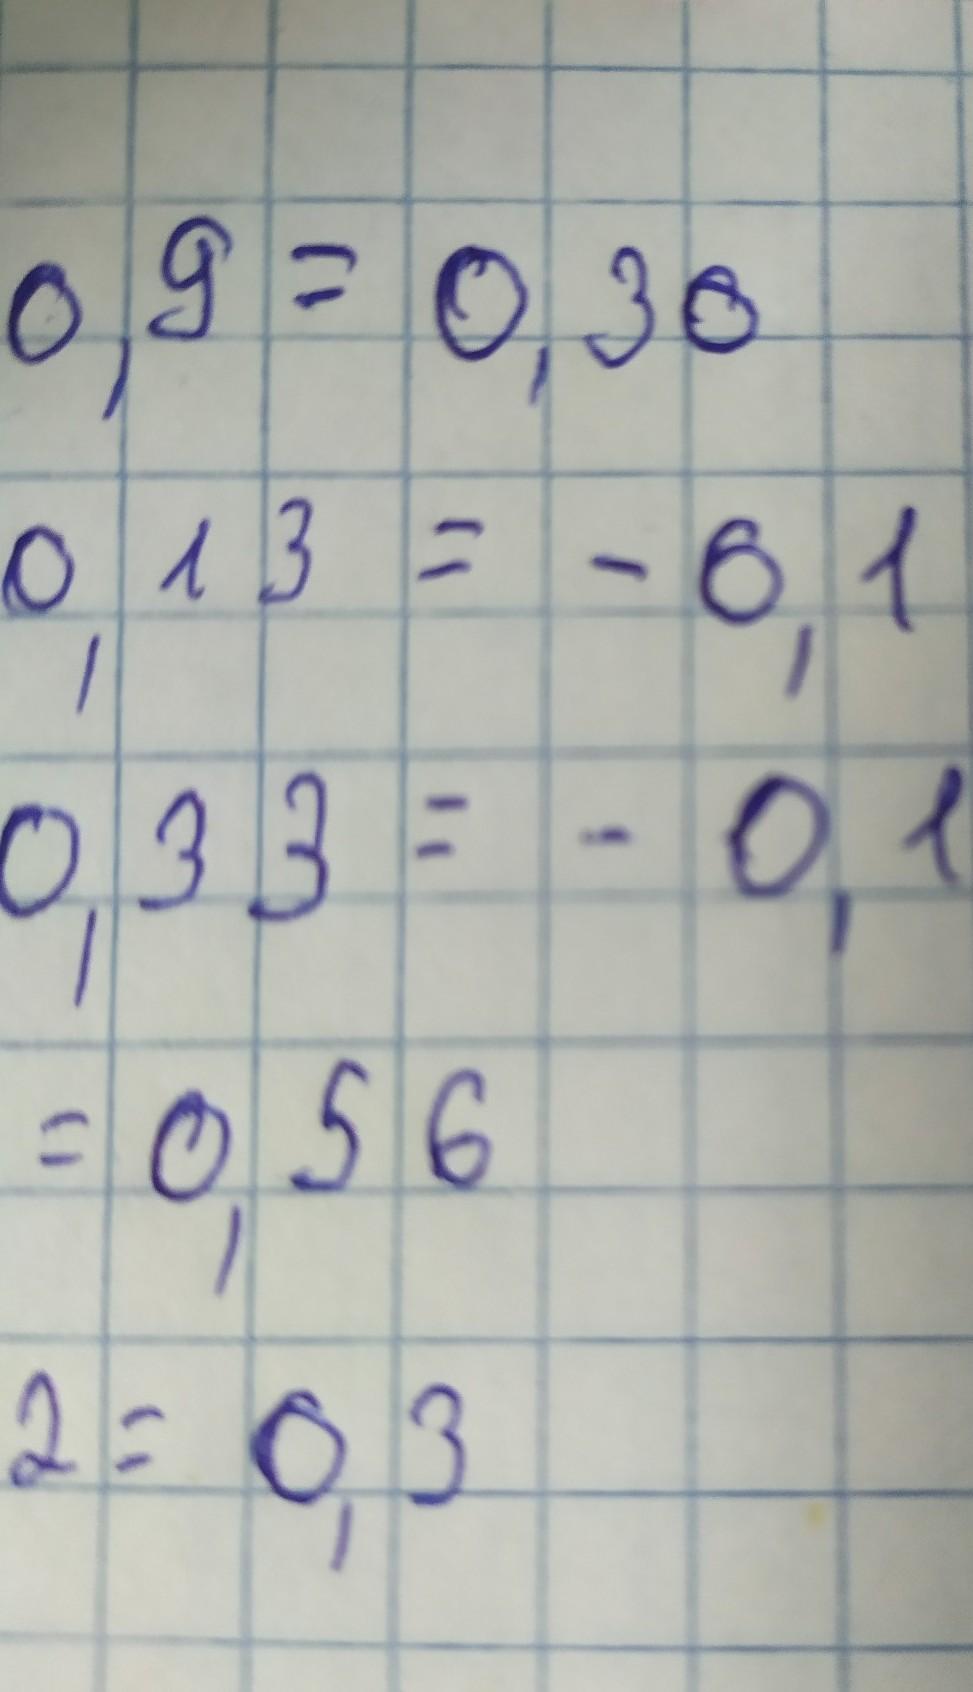 0,9 = 0,30
0,13 = - 0,1
0,33 = - 0,1
= 0,56
2 = 0,3